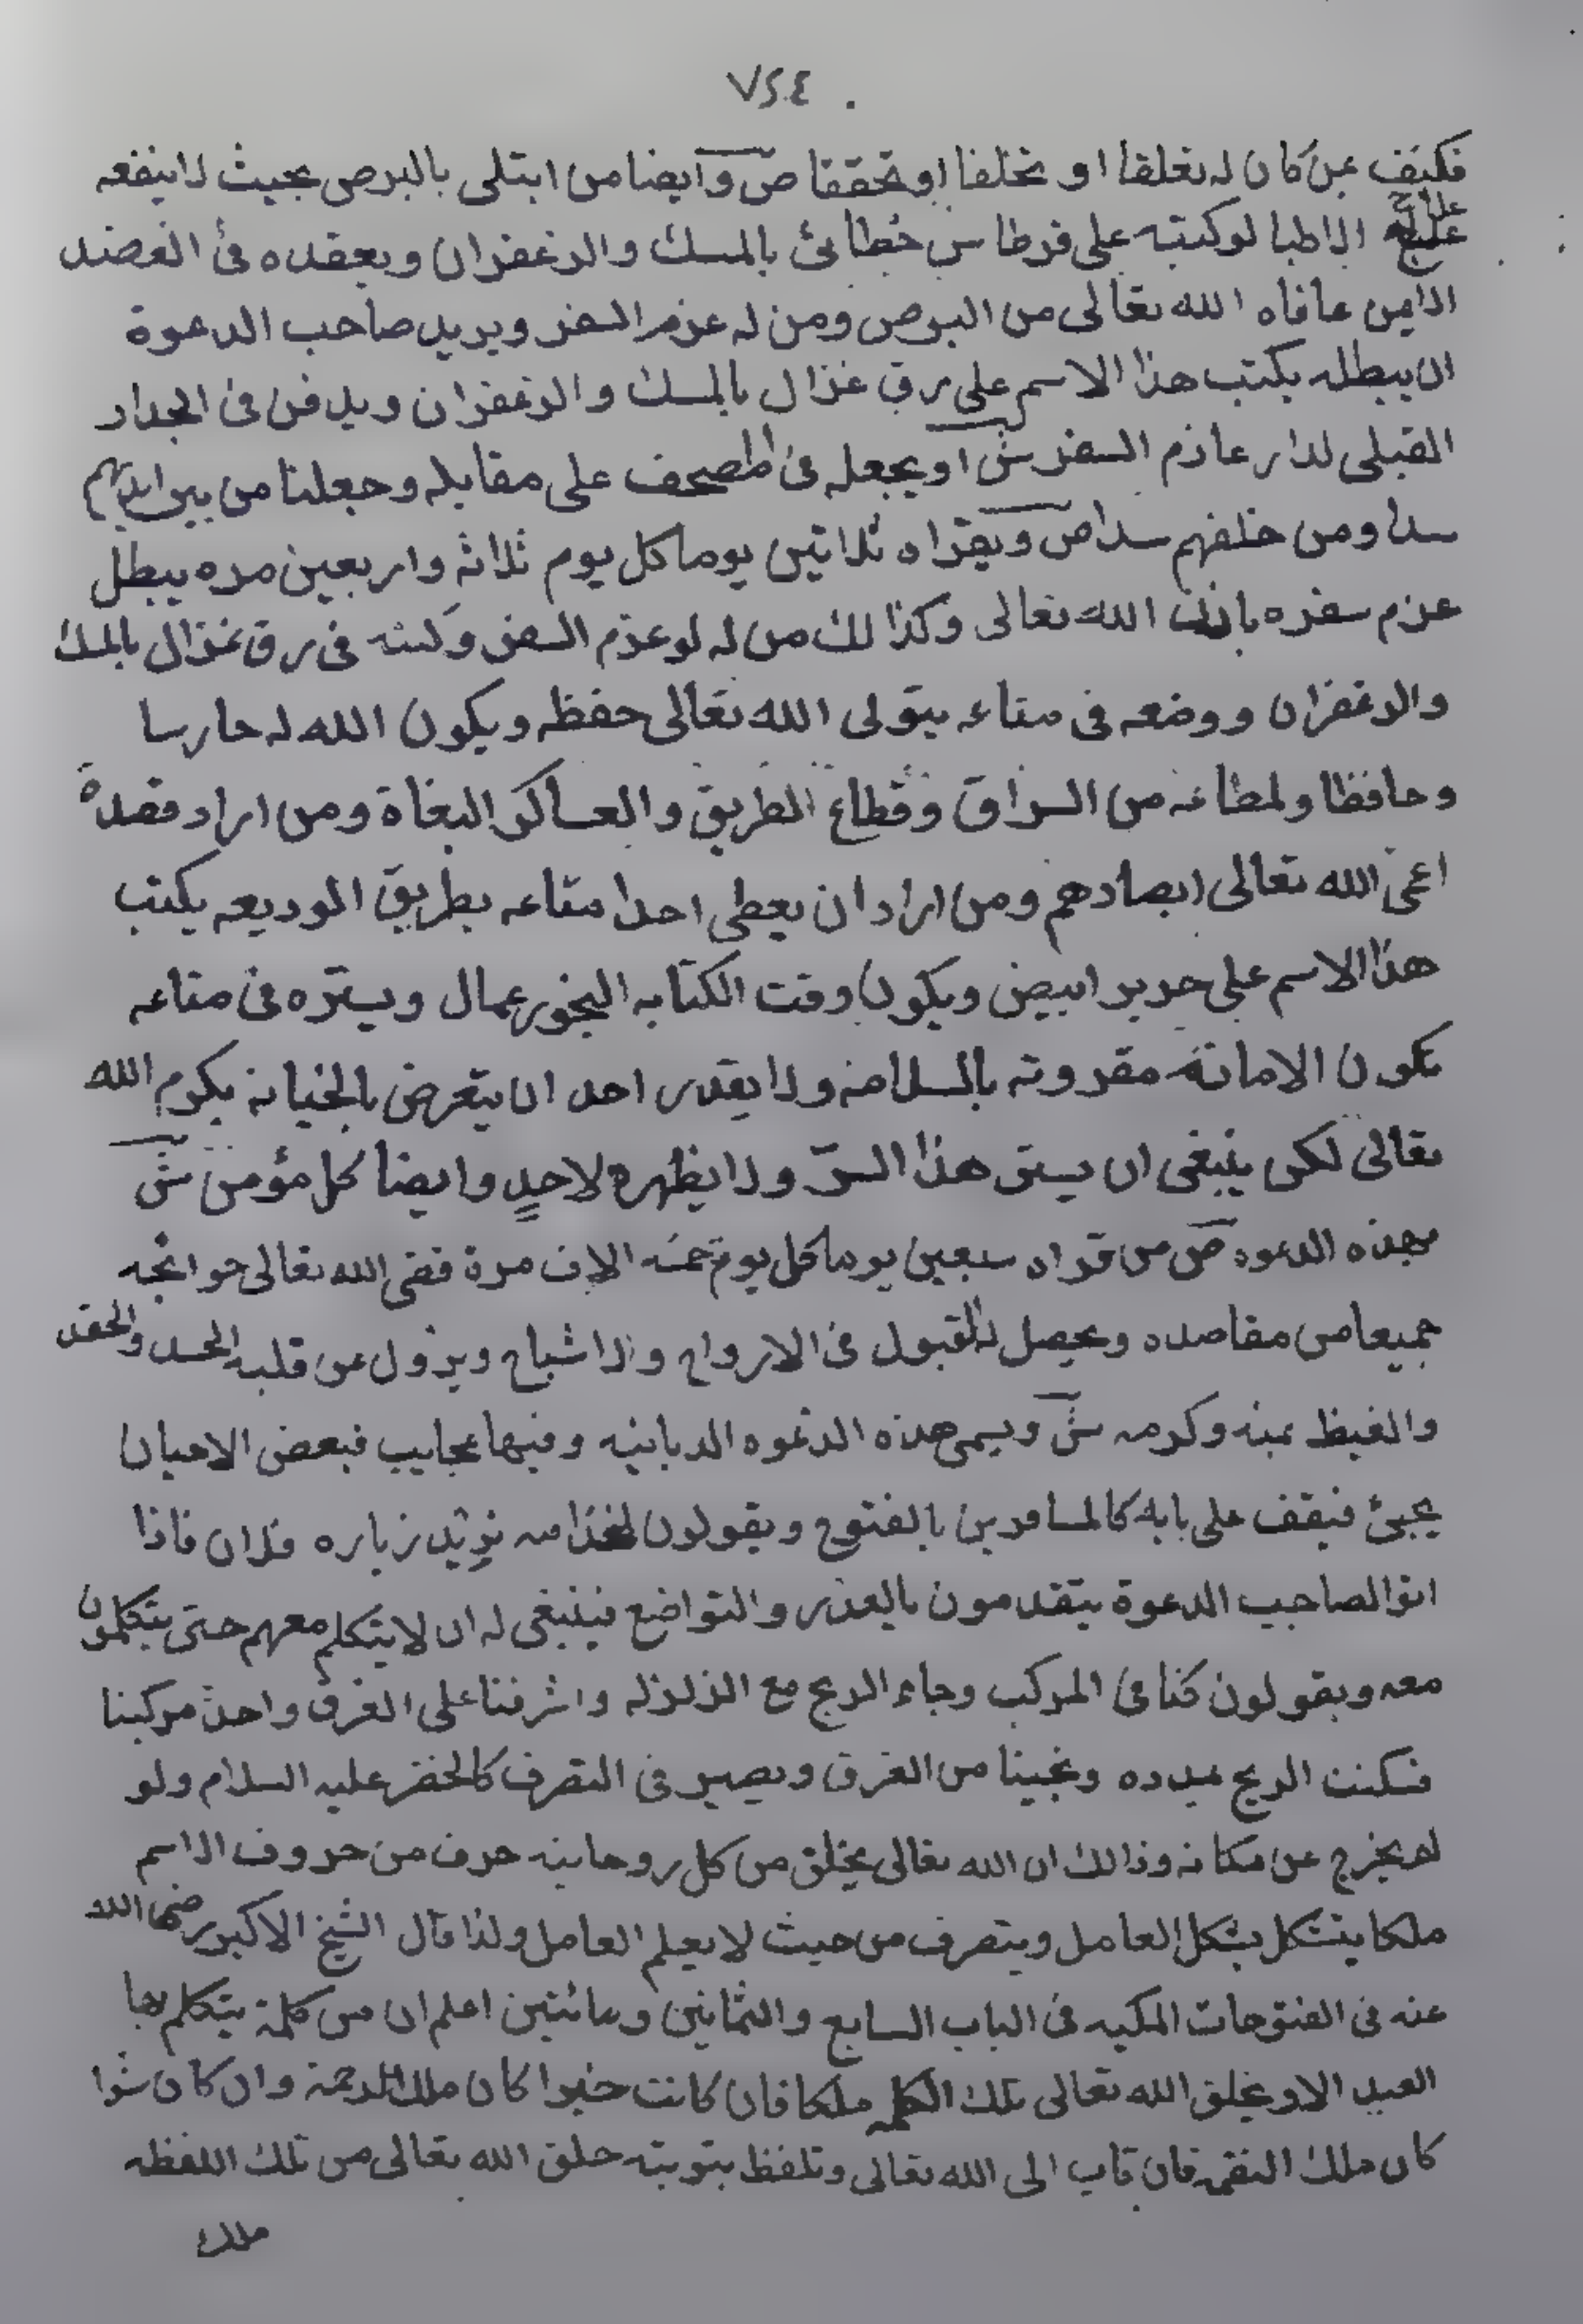 ٧٢٠٤
فكيف بمن كان له تعلقا او تخلقا او تحققا ص وايضا من ابتلى بالبرص بحيث لاينفعه
علاج الاطبا لو كتبه على قرطاس خطائي بالمسك والزعفران ويعقده في العضد
الايمن عافاه الله تعالى من البرص ومن له عزم السفر ويريد صاحب الدعوة
ان يبطله يكتب هذا الاسم على رق غزال بالمسك والزعفران ويدفن في الجدار
القبلى لدار عازم السفر ش او يجعله في المصحف على مقابله وجعلنا من بين ايديهم
سدا ومن خلفهم سدا ص ويقراه ثلاثين يوما كل يوم ثلاثة واربعين مره يبطل
عزم سفره باذن الله تعالى وكذالك من له لو عزم السفر وكتبه في رق غزال بالمسك
والزعفران ووضعه في متاعه يتولى الله تعالى حفظه ويكون الله له حارسا
وحافظا ولمطاعه من السراق وقطاع الطريق والعساكر البغاة ومن اراد قصده
اعمى الله تعالى ابصارهم ومن اراد ان يعطى احدا متاعه بطريق الوديعه يكتب
هذا الاسم على حرير ابيض ويكون وقت الكتابه البخور عمال ويستره في متاعه
تكون الامانة مقرونه بالسلامه ولايقدر احد ان يتعرض بالخيانه بكرم الله
تعالى لكن ينبغى ان يستر هذا السر ولايظهره لاحدٍ وايضا كل مؤمن ش
بهذه الدعوه ص من قراه سبعين يوما كل يوم خمسه الاف مرة قضى الله تعالى حوائجه
جميعا من مقاصده ويحصل له القبول في الارواح والاشباح ويزول عن قلبه الحسد والحقد
والغيظ بمنه وكرمه ش ويسمى هذه الدعوه الربانيه وفيها عجايب فبعض الاحيان
يجيئ فيقف على بابه كالمسافرين بالفتوح ويقولون لخدامه نريد زياره فلان فاذا
اتوا لصاحب الدعوة يتقدمون بالعذر والتواضع فينبغى له ان لايتكلم معهم حتى يتكلمون
معه ويقولون كنا في المركب وجاء الريح مع الزلزله واشرفنا على الغرق واحد مركبنا
فسكنت الريح بمدده ونجينا من الغرق ويصير في التصرف كالخضر عليه السلام ولو
لم يخرج من مكانه وذالك ان الله تعالى يخلق من كل روحانيه حرف من حروف الاسم
ملكا يتشكل بشكل العامل ويتصرف من حيث لايعلم العامل ولذا قال الشيخ الاكبر رضى الله
عنه في الفتوحات المكيه في الباب السابع والثمانين ومائتين اعلم ان من كلمة يتكلم بها
العبد الا ويخلق الله تعالى تلك الكلمه ملكا فان كانت خيرا كان ملك الرحمة وان كان شرا
كان ملك النقمه فان تاب الى الله تعالى وتلفظ بتوبته خلق الله تعالى من تلك اللفظه
ملك